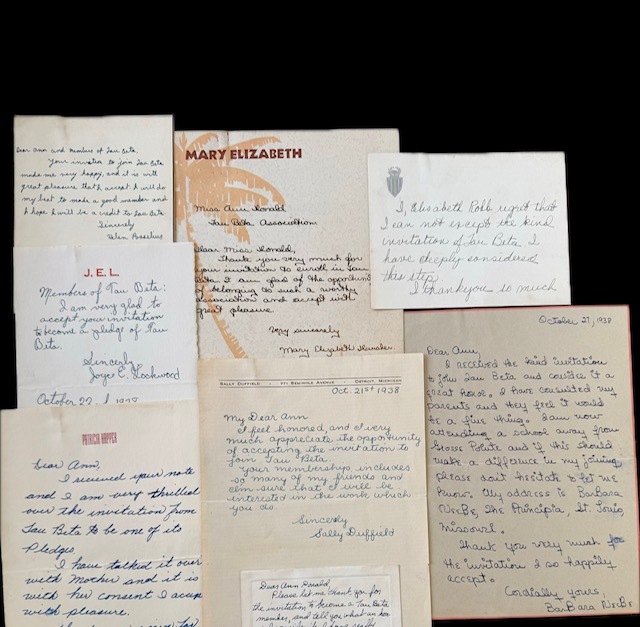 Dear Ann and Members of Tau Beta,
Your invitation to join Tau Beta
made me very happy, and it is with
great pleasure that I accept. I will do
my best to made a good member and
I hope I will be a credit to Tau Beta.
Sincerely
Helen
MARY ELIZABETH
Miss Ann Donald
Tau Beta Association
Dear Miss Donald,
Thank you very much for
your invitation to enroll in Tau
Beta. I am glad of the opportun
of belonging to such a worthy
association and accept with
great pleasure.
Very sincerely
Mary Elizabeth
I, Elisabeth Robb regret that
I can not except the kind
invitation of Tau Beta. I
have deeply considered
this step.
I thankyou so much
J.E.L.
Members of Tau Beta:
I am very glad to
accept your invitation
to become a pledge of Tau
Beta.
Sincerly
Joyce E. Lockwood
October 22, 1938
PATRICIA HAPPER
Dear Ann,
I received your note
and I am very thrilled
over the invitation from
Tau Beta to be one of its
Pledges.
I have talked it over
with Mother and it is
with her consent I accep
with pleasure.
SALLY DUFFIELD 771 SEMINOLE AVENUE DETROIT, MICHIGAN
Oct. 21st 1938
My Dear Ann
I feel honored, and I very
much appreciate the opportunity
of accepting the invitation to
join Tau Beta.
Your membership includes
so many of my friends and
I'm sure that I will be
interested in the work which
you do.
Sincerly
Sally Duffield
Dear Ann Donald,
Please let me thank you for
the invitation to become a Tau Beta
member, and tell you what an hon
October 27, 1938
Dear Ann,
I received the kind invitation
to join Tau Beta and consider it a
great honor. I have consulted my
parents and they feel it would
be a fine thing. I am now
attending a school away from
Grosse Pointe and if this should
make a difference in my joining
please don't hesitate to let me
know. My address is BarBara
NeeBe, The Principia, St. Louis,
Missouri.
Thank you very much for
the invitation I so happily
accept.
Cordially yours,
BarBara NeeBe